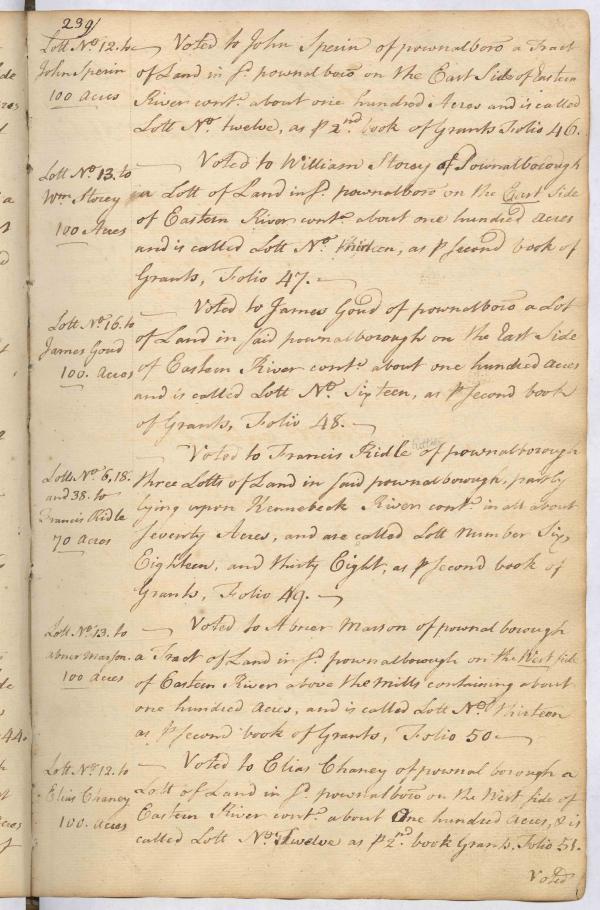 239
Lott No. 12. to
John Sperin
100 Acres
Voted to John Sperin of pownalboro a Tract
of Land in sd. pownalboro on the East Side of Eastern
River contg. about one hundred Acres and is called
Lott No. twelve, as p 2nd. book of Grants Folio 46.
Lott No. 13. to
Wm. Storey
100 Acres
Voted to William Storey of Pownalborough
a Lott of Land in sd. pownalboro on the East Side
of Eastern River contg. about one hundred acres
and is called Lott No. thirteen, as p second book of
Grants, Folio 47.
Lott No. 16. to
James Goud
100. Acres
Voted to James Goud of pownalboro a Lot
of Land in said pownalborough on the East Side
of Eastern River contg. about one hundred acres
and is called Lott No. Sixteen, as p second book
of Grants, Folio 48.
Lotts No. 6, 18.
and 38. to
Francis Ridle
70 Acres
Voted to Francis Ridle of pownalborough
three Lotts of Land in said pownalborough, partly
lying upon Kennebeck River contg. in all about
seventy Acres, and are called Lott number Six,
Eighteen, and thirty Eight, as p second book of
Grants, Folio 49.
Lott. No. 13. to
abner Masson.
100 Acres
Voted to Abner Masson of pownalborough
a Tract of Land in sd. pownalborough on the West side
of Eastern River above the mills containing about
one hundred Acres, and is called Lott No. thirteen
as p second book of Grants, Folio 50
Lott No. 12. to
Elias Chaney
100. Acres
Voted to Elias Chaney of pownalborough a
Lott of Land in sd. pownalboro on the West side of
Eastern River contg. about One hundred Acres, & is
called Lott No. Twelve as p 2nd. book Grants. Folio 51.
Voted